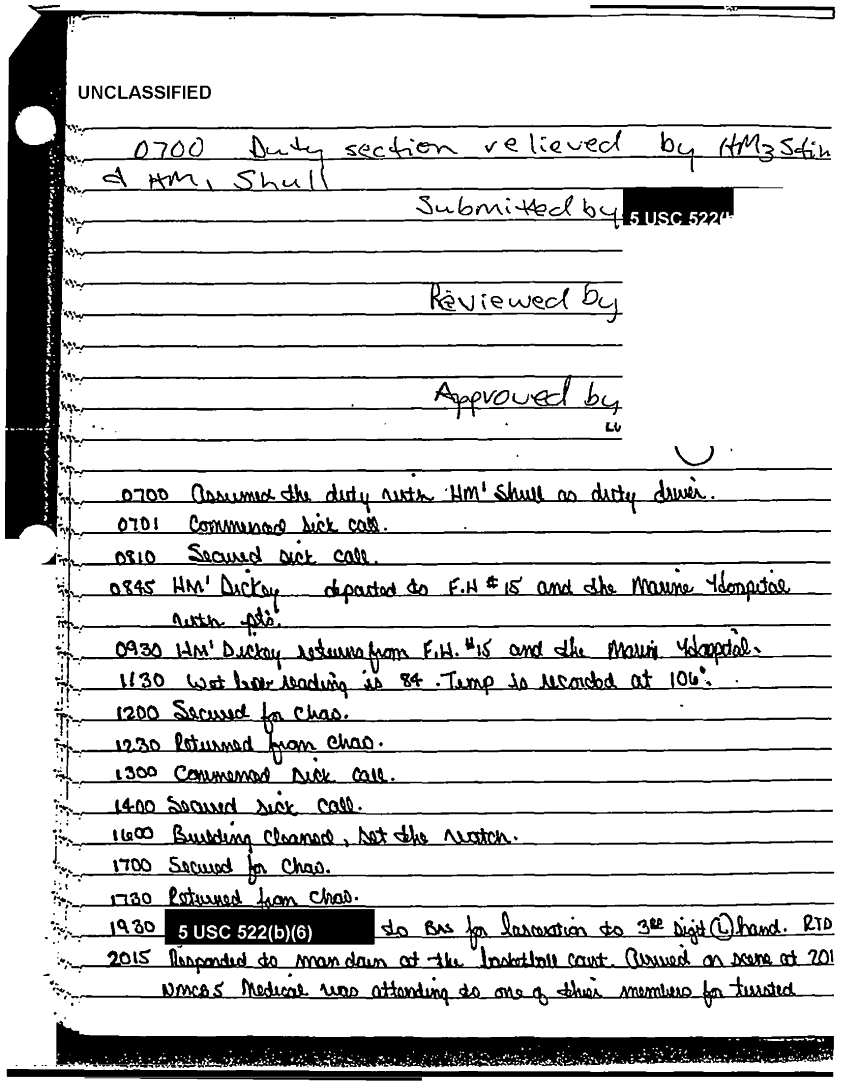 UNCLASSIFIED
0700 Duty section relieved by HM3
& HM1 Shull
Submitted by 5 USC 522(
Reviewed by
Approved by
0700 Assumed the duty with HM1 Shull as duty driver.
0701 Commenced sick call.
0810 Secured sick call.
0845 HM1 Dickey departed to F.H # 15 and the Marine Hospital
with pts.
0930 HM1 Dickey returns from F.H. #15 and the Marine Hospital.
1130 reading is 84. Temp is recorded at 106°.
1200 Secured for Chao.
1230 Returned from Chao.
1300 Commenced sick call.
1400 Secured sick call.
1600 Building cleaned, set the watch.
1700 Secured for Chao.
1730 Returned from Chao.
1930 5 USC 522(b)(6) to BAS for laceration to 3rd Digit (L) hand. RTD
2015 Responded to man down at the basketball court. Arrived on scene at 201
NMCB5 Medical was attending to one of their members for twisted